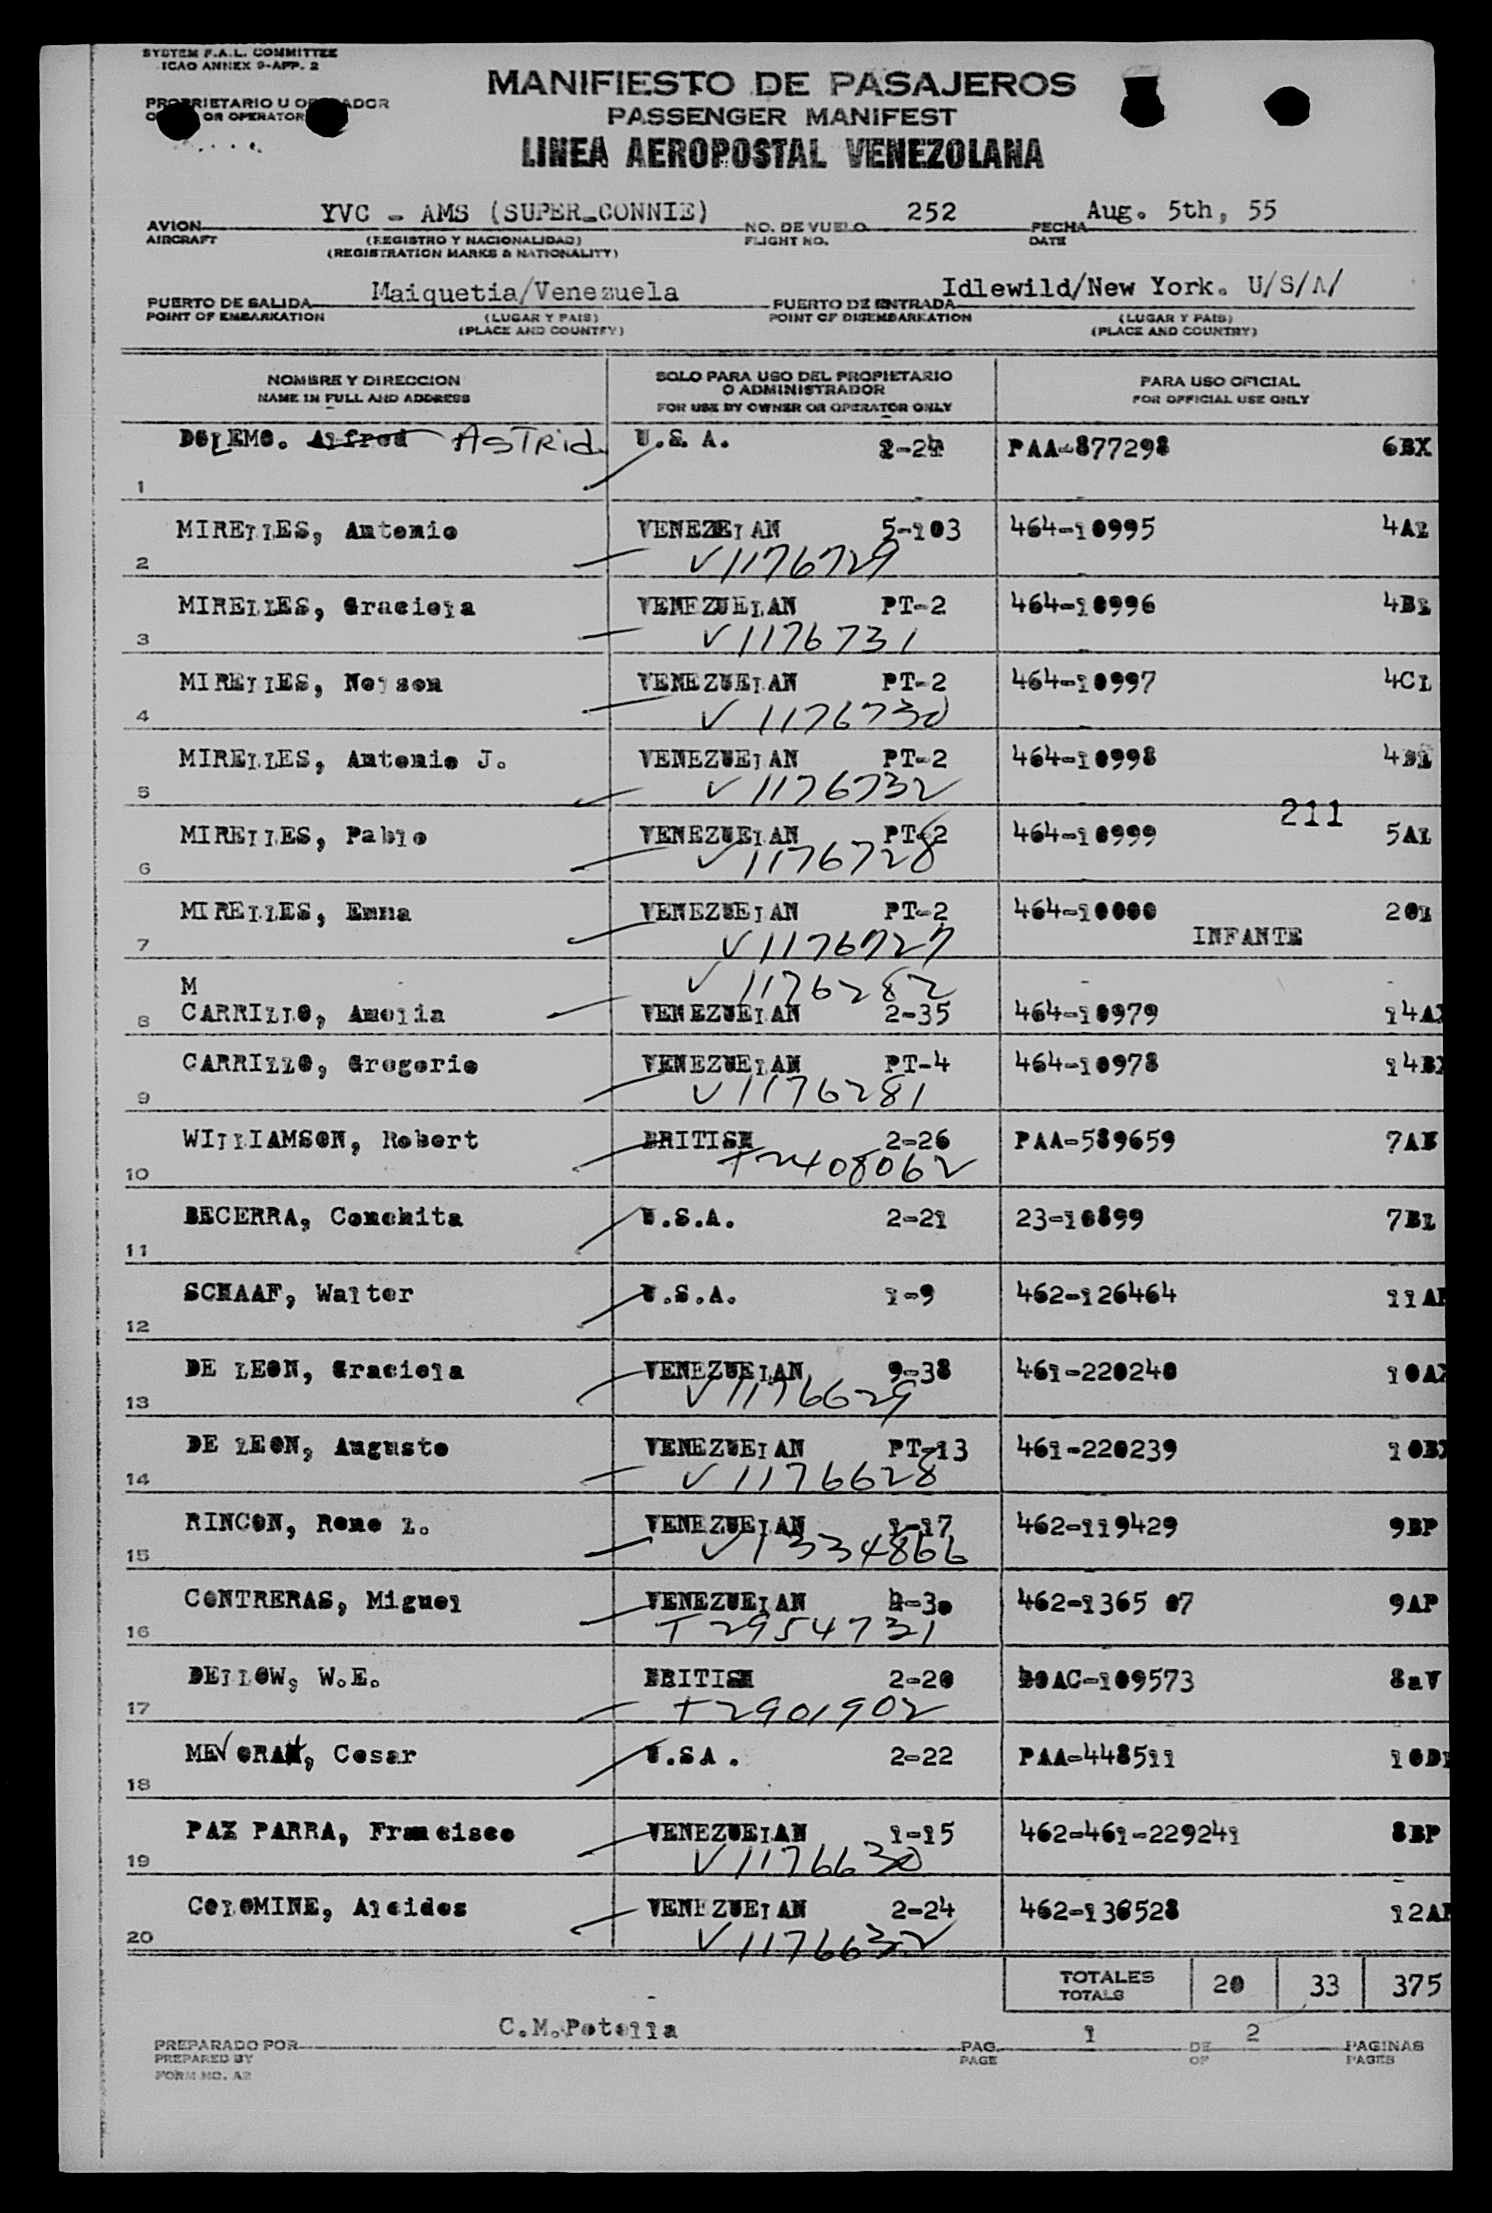 SYSTEM F.A.L. COMMITTEE
ICAO ANNEX 9-APP. 2
MANIFIESTO DE PASAJEROS
PASSENGER MANIFEST
LINEA AEROPOSTAL VENEZOLANA
PROPRIETARIO U OPERADOR
OR OPERATOR
AVION YVC - AMS (SUPER-CONNIE) NO. DE VUELO 252 FECHA Aug. 5th, 55
AIRCRAFT (REGISTRO Y NACIONALIDAD) FLIGHT NO. DATE
(REGISTRATION MARKS & NATIONALITY)
PUERTO DE SALIDA Maiquetia/Venezuela PUERTO DE ENTRADA Idlewild/New York. U/S/A/
POINT OF EMBARKATION (LUGAR Y PAIS) POINT OF DISEMBARKATION (LUGAR Y PAIS)
(PLACE AND COUNTRY) (PLACE AND COUNTRY)
NOMBRE Y DIRECCION SOLO PARA USO DEL PROPIETARIO O ADMINISTRADOR PARA USO OFICIAL
NAME IN FULL AND ADDRESS FOR USE BY OWNER OR OPERATOR ONLY FOR OFFICIAL USE ONLY
1 Alfred ASTRid U.S.A. PAA-877298 6BX
2 MIRELLES, Antonio 5-103 464-10995 4AL
V1176729
3 MIRELLES, Graciela VENEZUELAN PT-2 464-10996 4BL
V1176731
4 MIRELLES, Nelson VENEZUELAN PT-2 464-10997 4CL
V1176730
5 MIRELLES, Antonio J. VENEZUELAN PT-2 464-10998 4DL
V1176732
211
6 MIRELLES, Pablo VENEZUELAN PT-2 464-10999 5AL
V1176728
7 MIRELLES, Emma VENEZUELAN PT-2 464-10000
INFANTE
V1176727
M V1176282
8 CARRILLO, Amelia VENEZUELAN 2-35 464-10979 14AX
9 CARRILLO, Gregorio VENEZUELAN PT-4 464-10978 14BX
V1176281
10 WILLIAMSON, Robert BRITISH 2-26 PAA-589659
T2408062
11 BECERRA, Conchita U.S.A. 2-21 23-10899 7BL
12 SCHAAF, Walter U.S.A. 1-9 462-126464
13 DE LEON, Graciela VENEZUELAN 9-38 461-220240 10AX
V1176629
14 DE LEON, Augusto VENEZUELAN PT-13 461-220239 10BX
V1176628
15 RINCON, Rene L. VENEZUELAN 1-17 462-119429 9BP
V1334866
16 CONTRERAS, Miguel VENEZUELAN 462-1365 07 9AP
T2954731
17 DELLOW, W.E. BRITISH 2-20 BOAC-109573 8aV
T2901902
18 Cesar U.S.A. 2-22 PAA-448511
19 PAZ PARRA, Francisco VENEZUELAN 1-15 462-461-229241 8BP
V1176630
20 COLOMINE, Alcides VENEZUELAN 2-24 462-136528
V1176632
TOTALES 20 33 375
TOTALS
PREPARADO POR C.M.Potella PAG. 1 DE 2 PAGINAS
PREPARED BY PAGE OF PAGES
FORM NO. A2